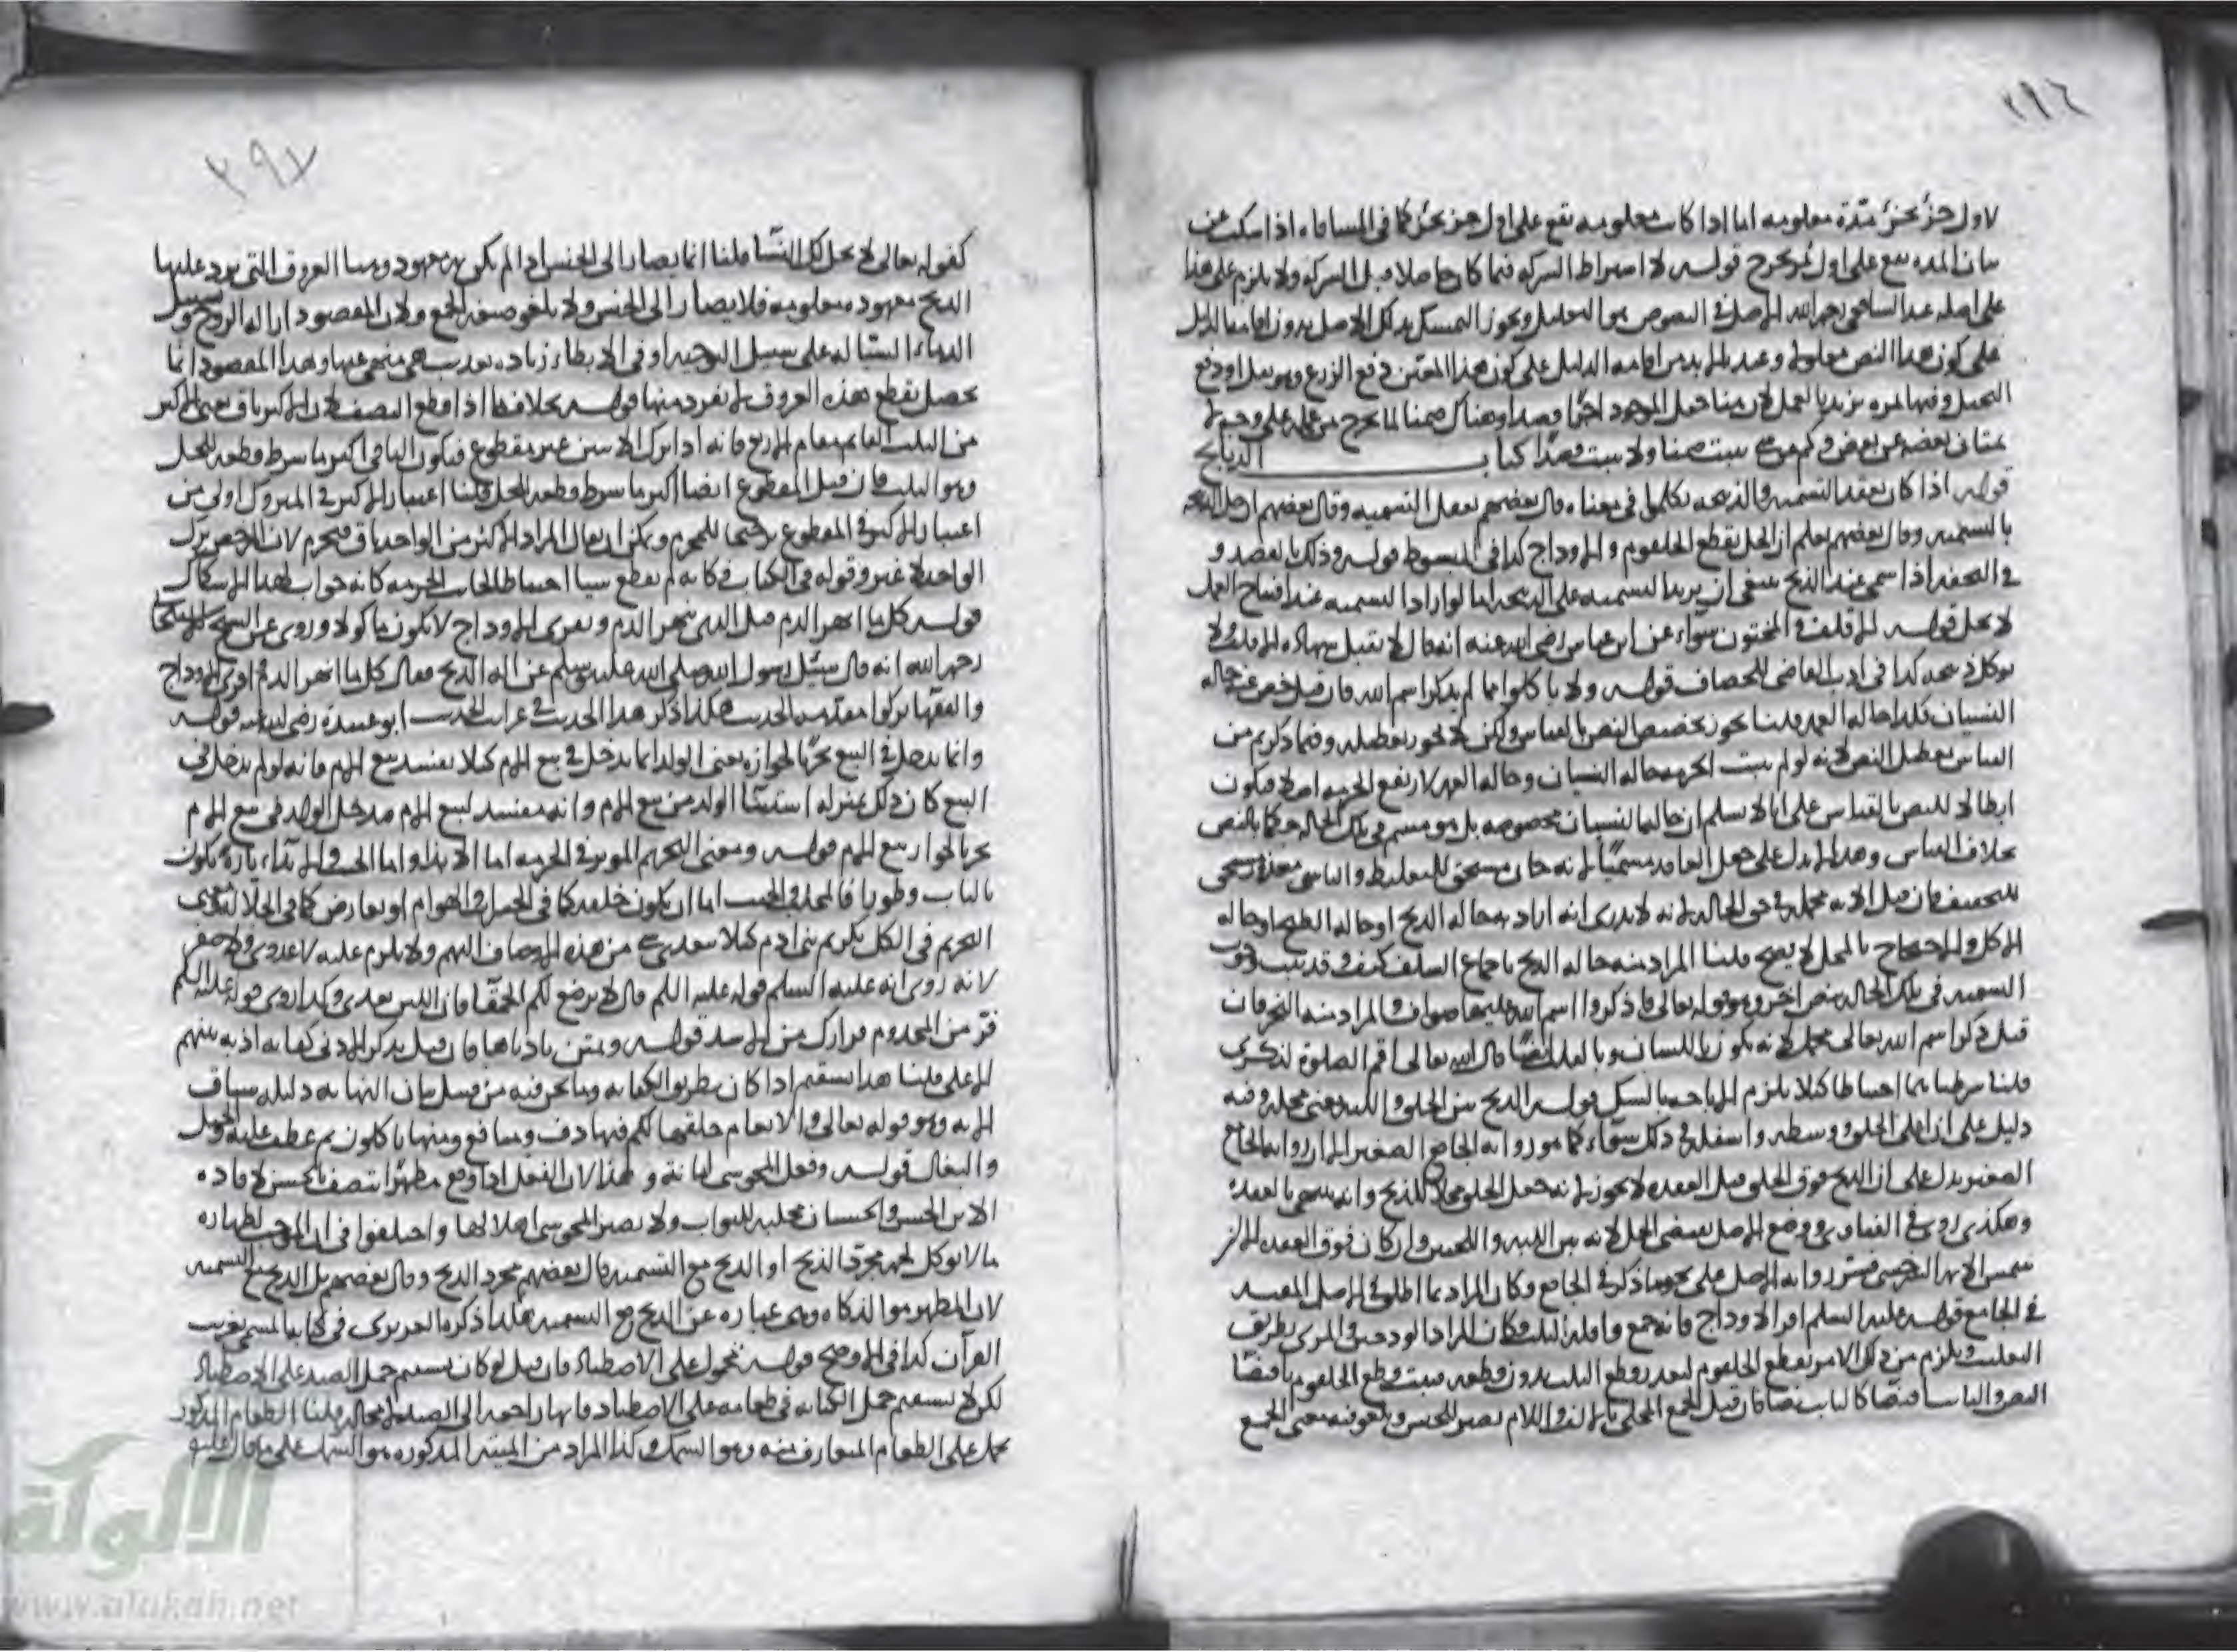 ٢٩٦
لاول جزء بجزء مدة معلومه اما اذا كانت معلومه تقع على اول جزء بجزء كما فى المساقاه اذا سكت عن
بيان المده يقع على اول ثمر يخرج قوله لا اشتراط الشركه فيما كان حاصلا قبل الشركه ولا يلزم على هذا
على اصله عند الشافعى رحمه الله الاصل فى النصوص هو التعليل ويجوز التمسك بذلك الاصل بدون اقامه الدليل
على كون هذا النص معلولا وعندنا لابد من اقامه الدليل على كون هذا المعين دفع الزرع
النخيل وفيها ثمره تزيد بالعمل لان هنا جعل الموجود اجرا قصدا وهناك ضمنا لما يخرج من عمله
من شى يثبت ضمنا ولا يثبت قصدا كتاب الذبايح
قوله اذا كان يعقد التسميه والذبيحه تكلموا فى معناه قال بعضهم يعقل التسميه وقال بعضهم
بالتسميه وقال بعضهم يعلم ان الحل بقطع الحلقوم والاوداج كذا فى المبسوط قوله وذلك بالقصد و
فى التحفه اذا سمى عند الذبح ينبغى ان يريد التسميه على الذبيحه اما لو اراد التسميه عند افتتاح العمل
لا يحل قوله الاقلف والمختون سواء عن ابن عباس رضى الله عنه انه قال لا تقبل شهاده الاقلف ولا
توكل ذبيحته كذا فى ادب القاضى للخصاف قوله ولا تاكلوا مما لم يذكر اسم الله فان قيل خص عنه حاله
النسيان فلنا حاله العمد قلنا يجوز تخصيص النص بالقياس ولكن لا يجوز تعطيله وفيما ذكرتم من
القياس تعطيل النص لانه لو لم يثبت الحرمه حاله النسيان وحاله العمد لارتفع الحرمه اصلا فيكون
ابطالا للنص بالقياس على انا لا نسلم ان حاله النسيان مخصوصه بل هو مسم فى تلك الحاله حكما بالنص
بخلاف القياس وهذا لا يدل على جعل العامد مسميا لانه جان مستحق للتغليظ والناسى معذور يستحق
للتخفيف فان قيل الايه مجمله فى حق الحاله لانه لا يدرى انه اراد به حاله الذبح او حاله الطبخ او حاله
الاكل والاحتجاج بالمجمل لا يصح قلنا المراد منه حاله الذبح باجماع السلف كيف وقد ثبت وجوب
التسميه فى تلك الحاله بنص اخر وهو قوله تعالى فاذكروا اسم الله عليها صواف والمراد منه النحر فان
قيل ذكر اسم الله تعالى مجمل لانه يكون باللسان وبالقلب ايضا قال الله تعالى اقم الصلوة لذكرى
قلنا شرطنا احتياطا كيلا يلزم الاباحه بالشك قوله الذبح بين الحلق واللبه يعنى محله وفيه
دليل على ان اعلى الحلق ووسطه واسفله فى ذلك سواء كما هو روايه الجامع الصغير الا ان روايه الجامع
الصغير يدل على ان الذبح فوق الحلق قبل العقده لا يجوز لانه جعل الحلق محلا للذبح
وهكذى روى فى الفتاوى ووضع الاصل يقتضى الحل لانه بين اللبه واللحيين وان كان فوق العقده الا ان
شمس الايمه السرخسى فسر روايه الاصل على نحو ما ذكر فى الجامع وكان المراد مما اطلق فى الاصل المقيد
فى الجامع قوله عليه السلم افر الاوداج فانه جمع واقله الثلث فكان المراد الودجين والمرى بطريق
التغليب ويلزم من ذلك الامر بقطع الحلقوم لتعذر قطع الثلث بدون قطعه فيثبت قطع الحلقوم باقتضا
النص والثابت اقتضا كالثابت نصا فان قيل الجمع المحلى بالالف واللام يصير للجنس ويلغو فيه معنى الجمع
٢٩٧
كقوله تعالى لا يحل لك النساء قلنا انما يصار الى الجنس اذا لم يكن ثم معهود وهنا العروق التى يرد عليها
الذبح معهود معلومه فلا يصار الى الجنس ولا يلغو صفه الجمع ولان المقصود ازاله الروح
الدماء السيالة على سبيل التوحيه اذ فى الابطاء زياده تعذيب هى منهى عنها وهذا المقصود انما
يحصل بقطع هذه العروق لا بفرد منها قوله بخلاف ما اذا قطع النصف لان الاكثر باق يعنى الاكثر
من الثلث القايم مقام الاربع فانه اذا ترك الاثنين غير مقطوع فيكون الباقى اكثر ما شرط قطعه للحل
وهو الثلث فان قيل المقطوع ايضا اكثر ما شرط قطعه للحل قلنا اعتبار الاكثر فى المتروك اولى من
اعتبار الاكثر فى المقطوع ترجيحا للمحرم ويمكن ان يقال المراد الاكثر من الواحد باق فيحرم لان الرخص ترك
الواحد لا غير وقوله فى الكتاب فكانه لم يقطع شيا احتياطا لجانب الحرمه كانه جواب لهذا الاشكال
قوله كل ما انهر الدم
رحمه الله انه قال سئل رسول الله صلى الله عليه وسلم عن اله الذبح فقال كل ما انهر الدم وافرى الاوداج
والفقها تركوا مقدمه الحديث هكذا ذكر هذا الحديث فى غرائب الحديث ابو عبيدة رضى الله عنه قوله
وانما يدخل فى البيع تحريا لجوازه يعنى الولد انما يدخل فى بيع الام كيلا يفسد بيع الام فانه لو لم يدخل فى
البيع كان ذلك بمنزله استثنا الولد من بيع الام وانه مفسد لبيع الام فدخل الولد فى بيع الام
تحريا لجواز بيع الام قوله ومعنى التحريم الموثر فى الحرمه اما الايذاء واما الخبث والايذاء تارة يكون
بالناب وطورا بالمخلب والخبث اما ان يكون خلقه كما فى الحشرات والهوام او بعارض كما فى الجلاله
التحريم فى الكل تكريم بنى ادم كيلا يعدى شى من هذه الاوصاف اليهم ولا يلزم عليه لا عدوى ولا صفر
لانه روى انه عليه السلم قوله عليه السلم قال لا يرضع لكم الحمقا فان اللبن يعدى وكذا روى قوله عليه السلم
فر من المجذوم فرارك من الاسد قوله ويمتن باذناها فان قيل يذكر الادنى كما به اذ به ينبهم
الاعلى قلنا هذا يستقيم اذا كان بطريق الكفايه وما نحن فيه من قبيل بيان النهايه دليله سياق
الايه وهو قوله تعالى والانعام خلقها لكم فيها دف ومنافع ومنها تاكلون ثم عطف عليه الخيل
والبغال قوله وفعل المجوسى اماتة وهذا لان الفعل اذا وقع مطهرا اتصف بالحسن لافاده
الاثر الحسن والحسان مجلبه للثواب ولا يصير المجوسى اهلا لها واختلفوا فى ان الموجب لطهاره
ما لا يوكل لحمه مجرد الذبح او الذبح مع التسميه قال بعضهم مجرد الذبح وقال بعضهم بل الذبح مع التسميه
لان المطهر هو الذكاه وهى عباره عن الذبح مع التسميه هكذا ذكره العزيرى فى كتابه المسمى بغريب
القرآن كذا فى الاوضح قوله محمول على الاصطياد فان قيل لو كان يستقيم حمل الصيد على الاصطياد
لكن لا يستقيم حمل الكنايه فى طعامه على الاصطياد فانها راجعه الى الصيد لا محاله قلنا الطعام المذكور
يحمل على الطعام المتعارف منه وهو السمك وكذا المراد من الميته المذكوره هو السمك على ما قال عليه
الالوكة
www.alukah.net